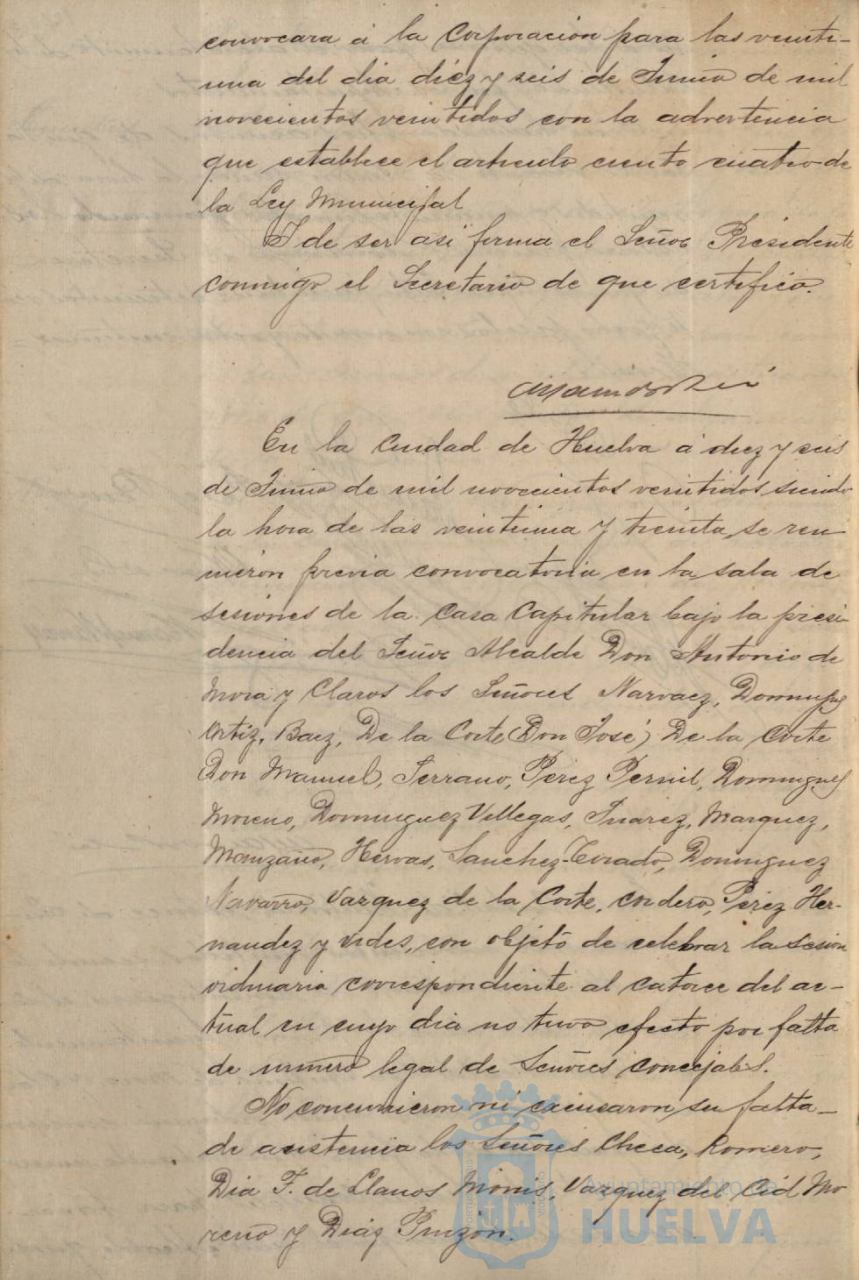 convocara á la Corporación para las veinti-
una del dia diez y seis de Junio de mil
novecientos veintidos con la advertencia
que establece el articulo ciento cuatro de
la Ley Municipal
Y de ser asi firma el Señor Presidente
conmigo el Secretario de que certifico.
En la Ciudad de Huelva á diez y seis
de Junio de mil novecientos veintidos siendo
la hora de las veintiuna y treinta, se reu-
nieron previa convocatoria en la sala de
sesiones de la Casa Capitular bajo la presi-
dencia del Señor Alcalde Don Antonio de
Mora y Claros los Señores Narvaez, Dominguez
Ortiz, Baez, De la Corte (Don José) De la Corte
Don Manuel, Serrano, Perez Pernil, Dominguez
Moreno, Dominguez Villegas, Juarez, Marquez,
Manzano, Hervas, Sanchez-Tirado, Dominguez
Navarro, Vazquez de la Corte, Cordero, Perez Her-
nandez y Vides, con objeto de celebrar la sesion
ordinaria correspondiente al catorce del ac-
tual en cuyo dia no tuvo efecto por falta
de número legal de Señores concejales.
No concurrieron ni excusaron su falta
de asistencia los Señores Checa, Romero,
Dia F. de Llanos Monis, Vazquez del Cid Mo
reno y Diaz Pinzón.
Ayuntamiento de
HUELVA